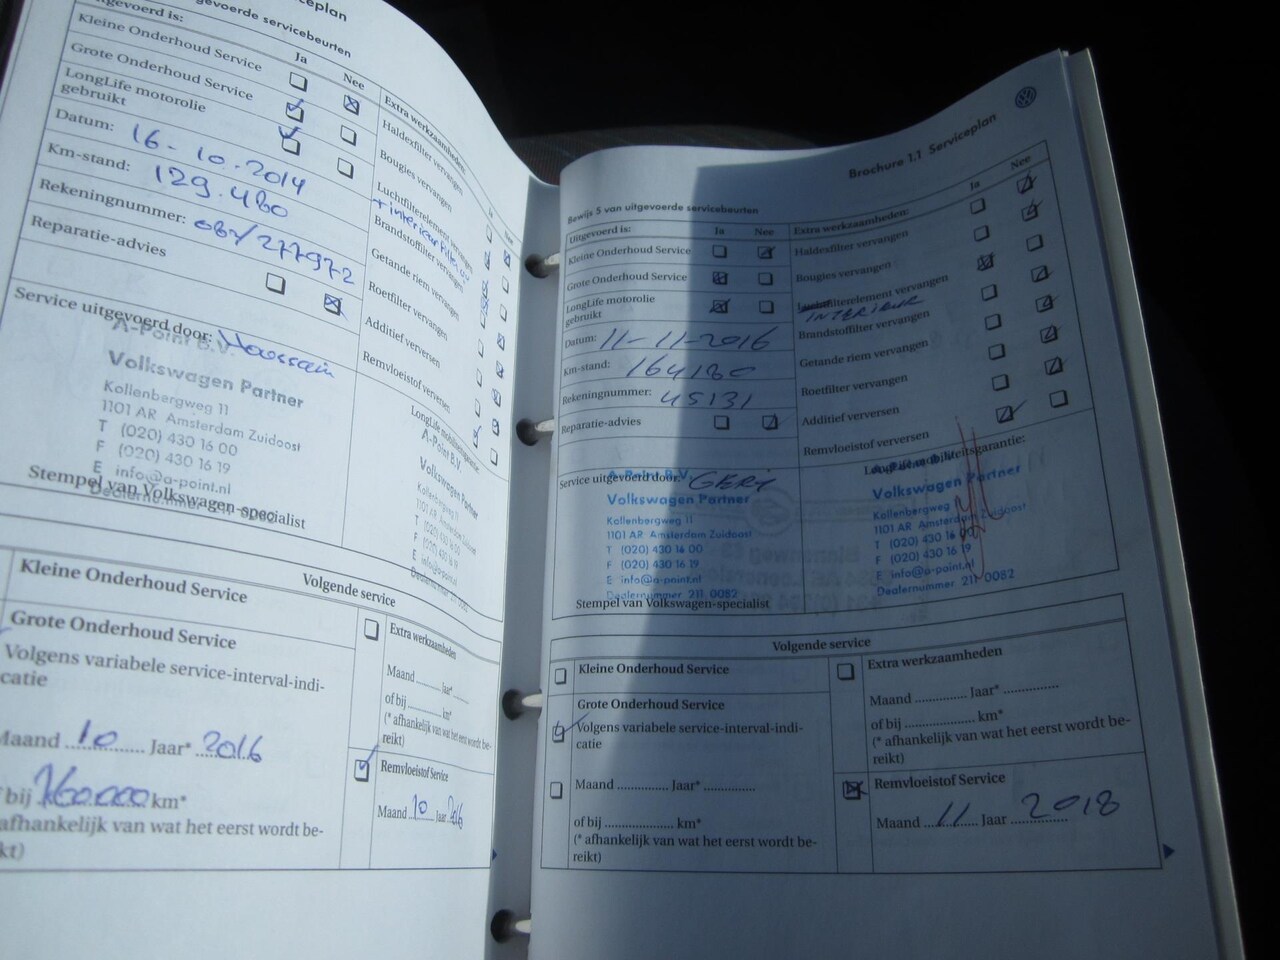 Serviceplan
uitgevoerde servicebeurten
Uitgevoerd is:
Ja
Nee
Kleine Onderhoud Service
Grote Onderhoud Service
LongLife motorolie
gebruikt
Datum:
16-10.2014
Km-stand:
129.480
Rekeningnummer:
Reparatie-advies
Extra werkzaamheden:
Haldexfilter vervangen
Bougies vervangen
Luchtfilterelement vervangen
+ interieurfilter
Brandstoffilter vervangen
Getande riem vervangen
Roetfilter vervangen
Additief verversen
Remvloeistof verversen
Service uitgevoerd door:
A-Point B.V.
Volkswagen Partner
Kollenbergweg 11
1101 AR Amsterdam Zuidoost
T (020) 430 16 00
F (020) 430 16 19
E info@a-point.nl
Stempel van Volkswagen-specialist
LongLife mobiliteitsgarantie:
A-Point B.V.
Volkswagen Partner
Kollenbergweg 11
1101 AR Amsterdam Zuidoost
T (020) 430 16 00
F (020) 430 16 19
E info@a-point.nl
Dealernummer 211 0082
Volgende service
Kleine Onderhoud Service
Grote Onderhoud Service
Volgens variabele service-interval-indi-
catie
Maand 10 Jaar* 2016
of bij 160.000 km*
afhankelijk van wat het eerst wordt be-
reikt)
Extra werkzaamheden
Maand Jaar*
of bij km*
(* afhankelijk van wat het eerst wordt be-
reikt)
Remvloeistof Service
Maand 10 Jaar 2016
Brochure 1.1 Serviceplan
Bewijs 5 van uitgevoerde servicebeurten
Uitgevoerd is:
Ja
Nee
Kleine Onderhoud Service
Grote Onderhoud Service
LongLife motorolie
gebruikt
Datum: 11-11-2016
Km-stand: 164180
Rekeningnummer: 45131
Reparatie-advies
Extra werkzaamheden:
Ja
Nee
Haldexfilter vervangen
Bougies vervangen
Luchtfilterelement vervangen
INTERIEUR
Brandstoffilter vervangen
Getande riem vervangen
Roetfilter vervangen
Additief verversen
Remvloeistof verversen
Service uitgevoerd door:
A-Point B.V.
Volkswagen Partner
Kollenbergweg 11
1101 AR Amsterdam Zuidoost
T (020) 430 16 00
F (020) 430 16 19
E info@a-point.nl
Dealernummer 211 0082
Stempel van Volkswagen-specialist
LongLife mobiliteitsgarantie:
Volkswagen Partner
Kollenbergweg
1101 AR Amsterdam Zuidoost
T (020) 430 16 00
F (020) 430 16 19
E info@a-point.nl
Dealernummer 211 0082
Volgende service
Kleine Onderhoud Service
Grote Onderhoud Service
Volgens variabele service-interval-indi-
catie
Maand Jaar*
of bij km*
(* afhankelijk van wat het eerst wordt be-
reikt)
Extra werkzaamheden
Maand Jaar*
of bij km*
(* afhankelijk van wat het eerst wordt be-
reikt)
Remvloeistof Service
Maand 11 Jaar 2018